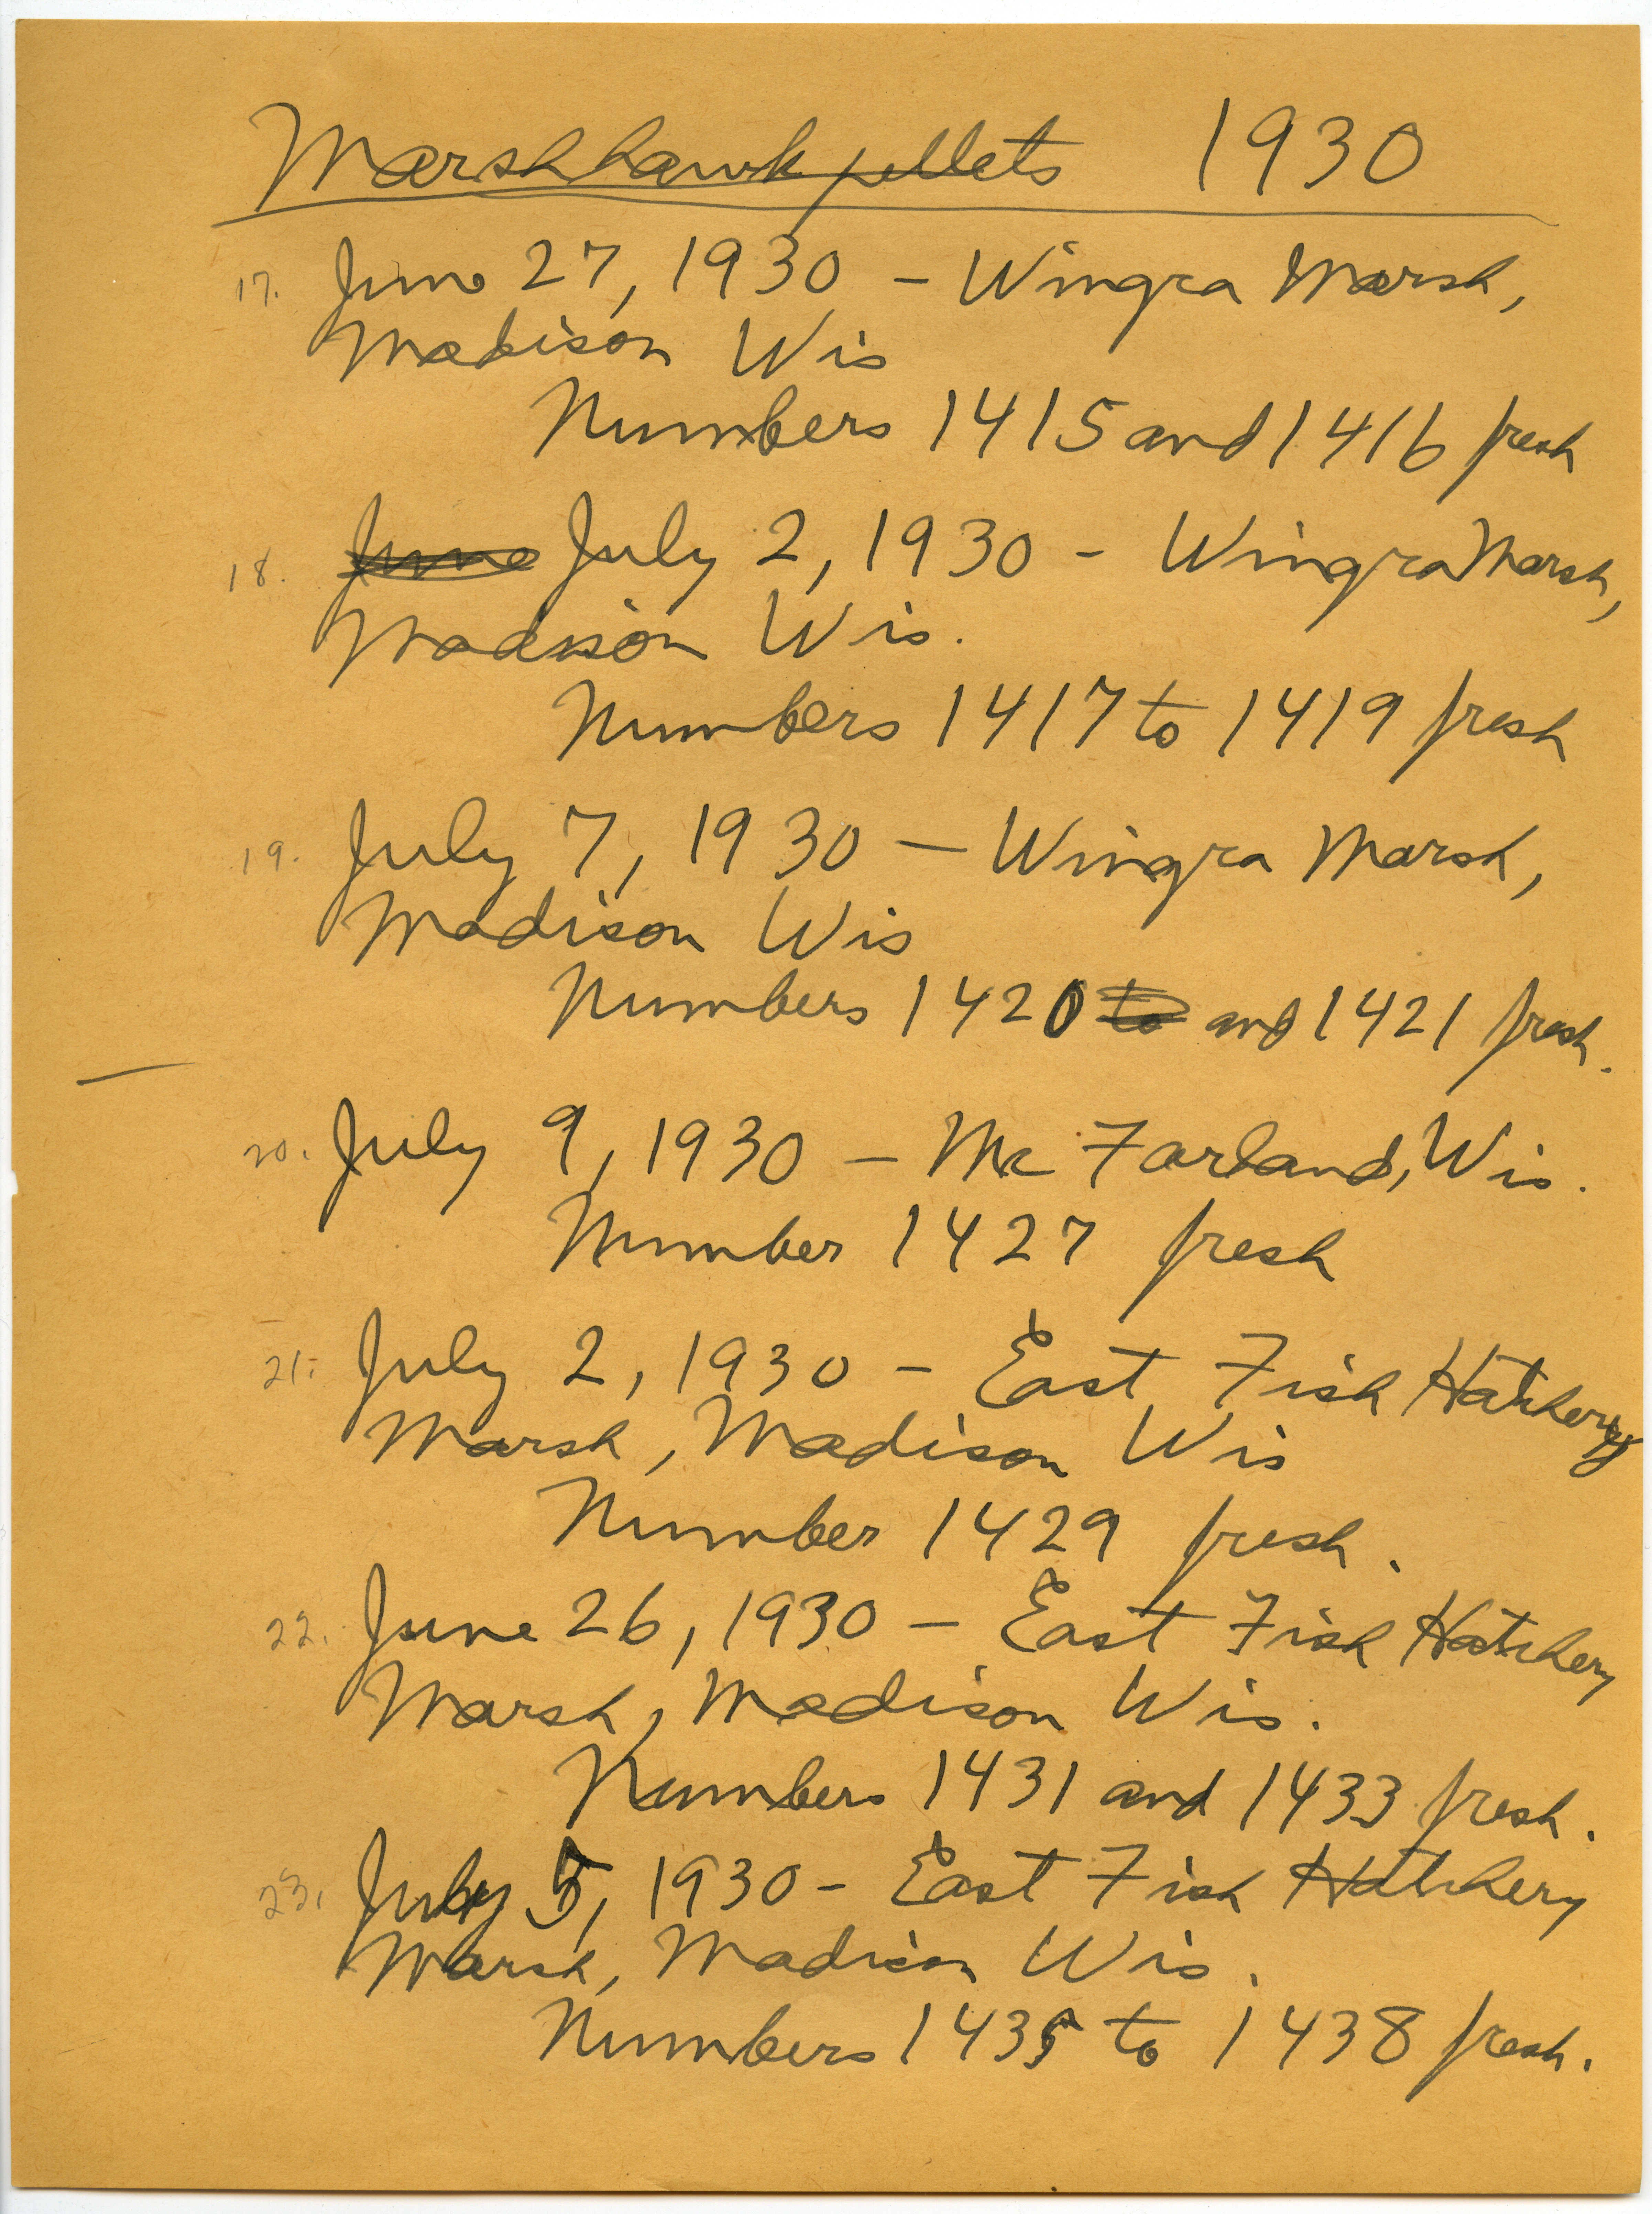 Marsh hawk pellets 1930
17. June 27, 1930 – Wingra Marsh,
Madison Wis
Numbers 1415 and 1416 fresh
18. June July 2, 1930 – Wingra Marsh,
Madison Wis.
Numbers 1417 to 1419 fresh
19. July 7, 1930 – Wingra Marsh,
Madison Wis
Numbers 1420 to and 1421 fresh.
20. July 9, 1930 – Mc Farland, Wis.
Number 1427 fresh
21. July 2, 1930 – East Fish Hatchery
Marsh, Madison Wis
Number 1429 fresh.
22. June 26, 1930 – East Fish Hatchery
Marsh, Madison Wis.
Numbers 1431 and 1433 fresh.
23. July 5, 1930 – East Fish Hatchery
Marsh, Madison Wis.
Numbers 1435 to 1438 fresh.